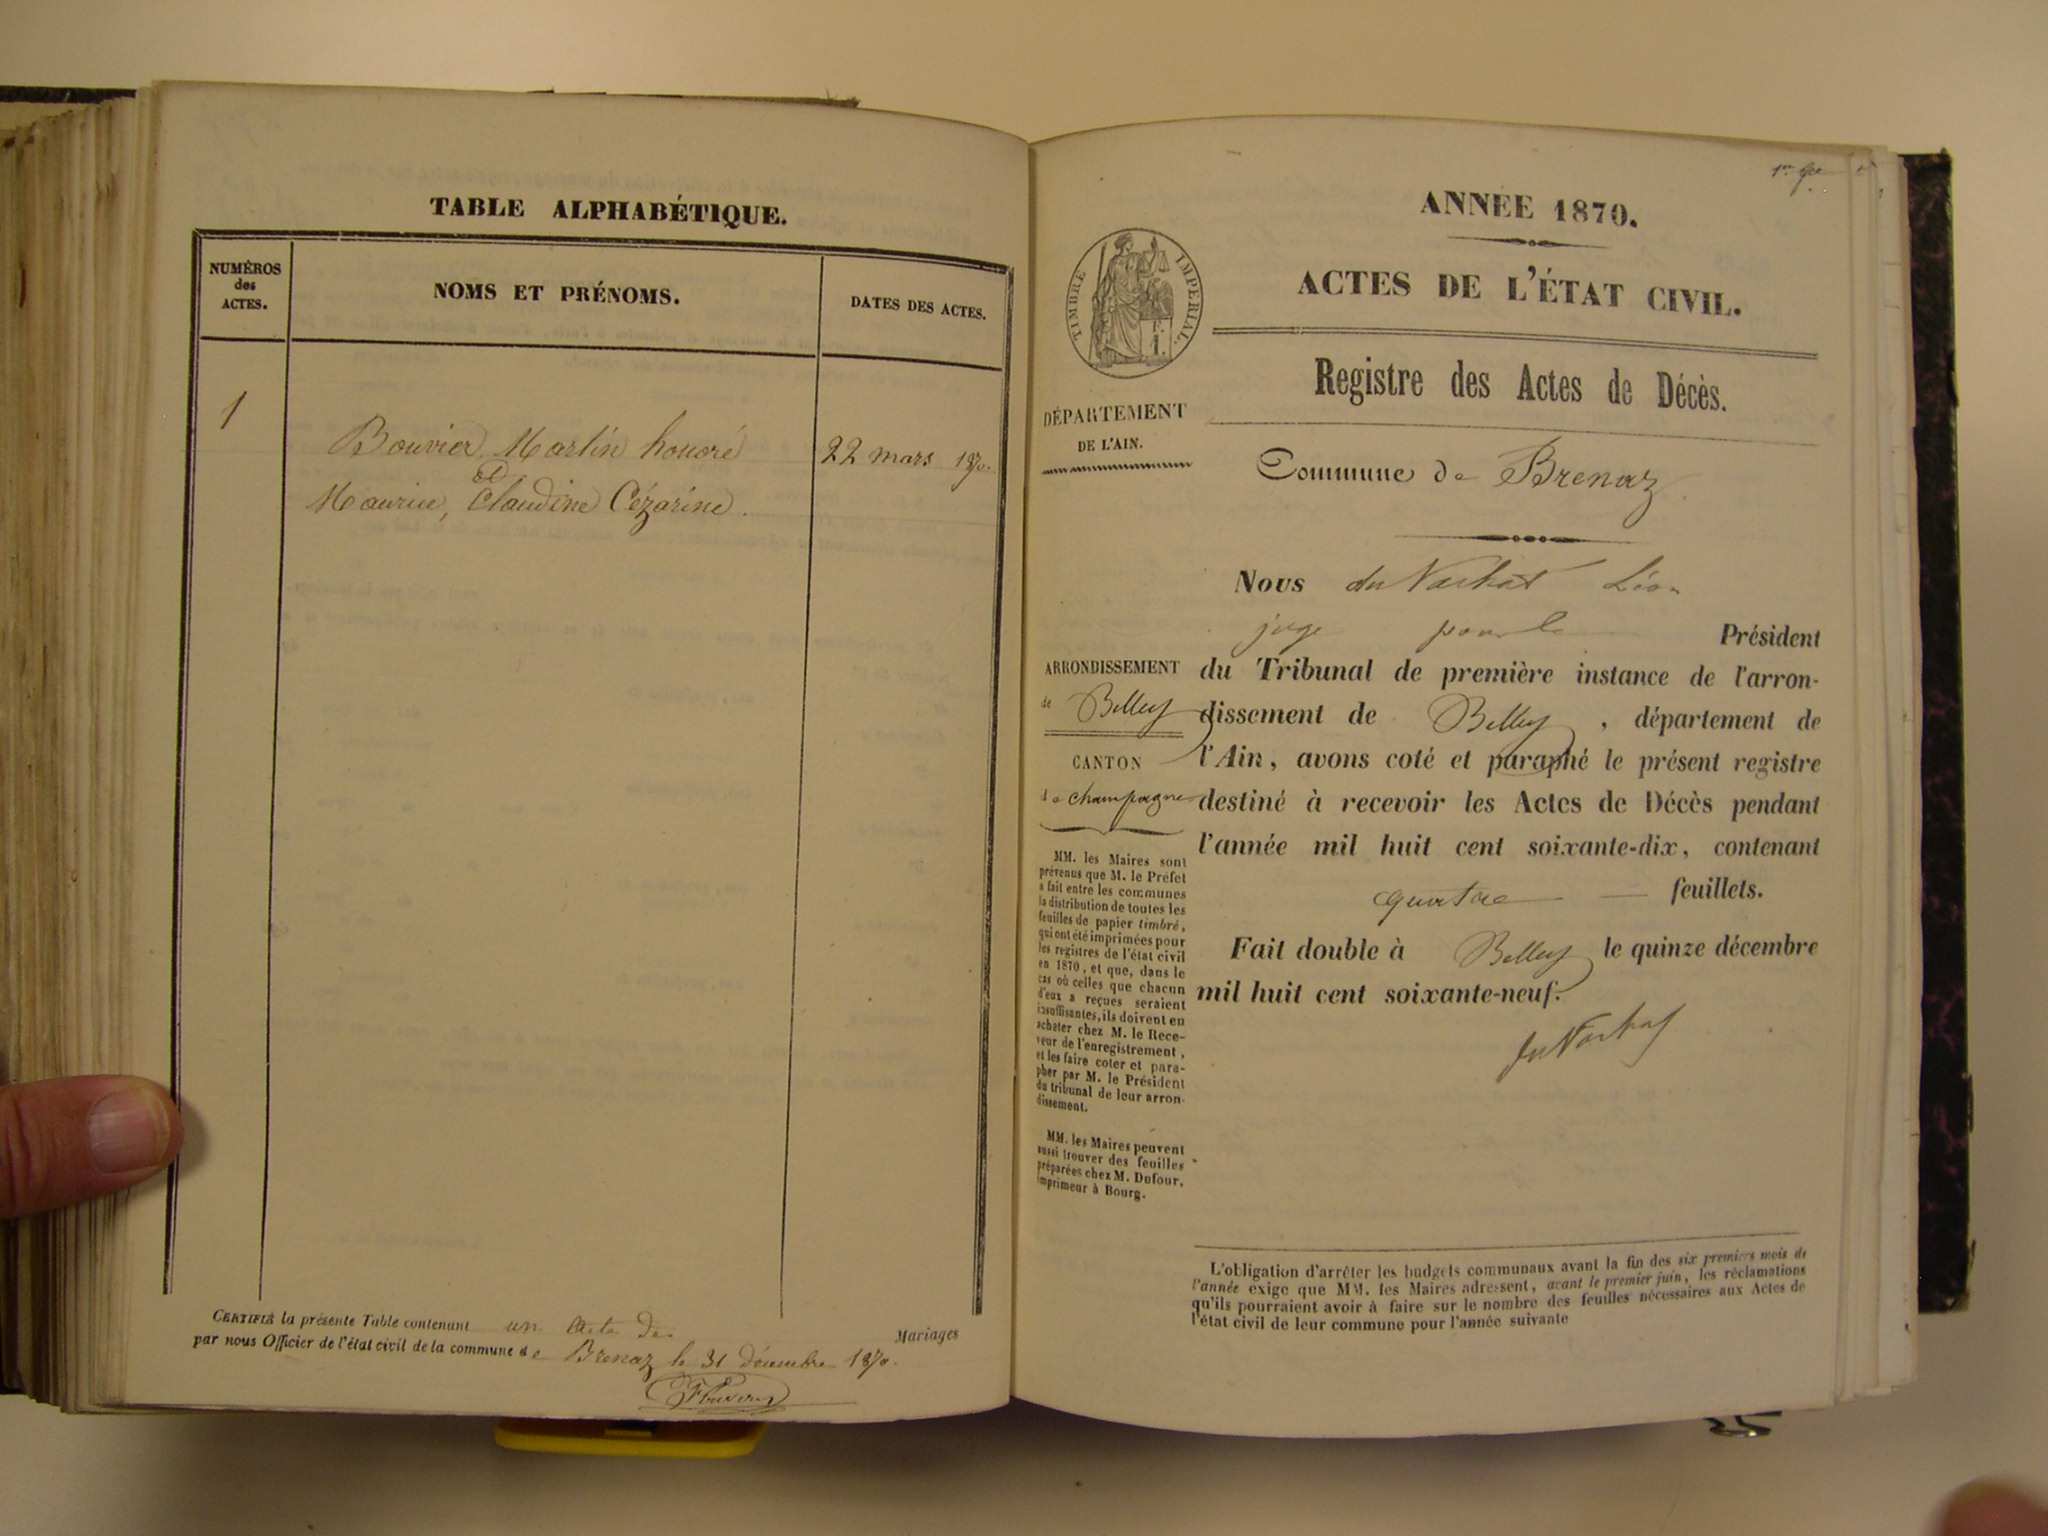 TABLE ALPHABÉTIQUE.
NUMÉROS
des
ACTES.
NOMS ET PRÉNOMS.
DATES DES ACTES.
1
Bouvier, Martin honoré
22 mars 1870.
et
Maurice, Claudine Cézarine.
CERTIFIÉ la présente Table contenant un acte de Mariages
par nous Officier de l'état civil de la commune de Brenaz le 31 décembre 1870.
ANNÉE 1870.
ACTES DE L'ÉTAT CIVIL.
TIMBRE IMPÉRIAL.
Registre des Actes de Décès.
DÉPARTEMENT
DE L'AIN.
Commune de Brenaz
Nous du Nachat Léon
juge pour le Président
ARRONDISSEMENT
de Belley
CANTON
de champagne
du Tribunal de première instance de l'arron-
dissement de Belley, département de
l'Ain, avons coté et paraphé le présent registre
destiné à recevoir les Actes de Décès pendant
l'année mil huit cent soixante-dix, contenant
quatre feuillets.
Fait double à Belley le quinze décembre
mil huit cent soixante-neuf.
MM. les Maires sont
prévenus que M. le Préfet
a fait entre les communes
la distribution de toutes les
feuilles de papier timbré,
qui ont été imprimées pour
les registres de l'état civil
en 1870, et que, dans le
cas où celles que chacun
d'eux a reçues seraient
insuffisantes, ils doivent en
acheter chez M. le Rece-
veur de l'enregistrement,
et les faire coter et para-
pher par M. le Président
du tribunal de leur arron-
dissement.
MM. les Maires peuvent
aussi trouver des feuilles
préparées chez M. Dufour,
imprimeur à Bourg.
L'obligation d'arrêter les budgets communaux avant la fin des six premiers mois de
l'année exige que MM. les Maires adressent, avant le premier juin, les réclamations
qu'ils pourraient avoir à faire sur le nombre des feuilles nécessaires aux Actes de
l'état civil de leur commune pour l'année suivante